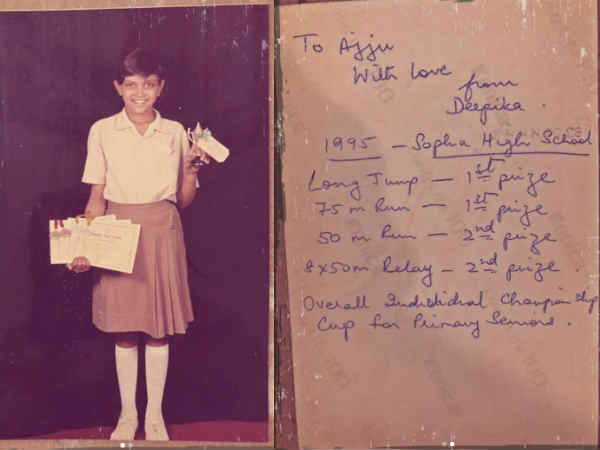 To Ajju
With love
from
Deepika.
1995 - Sopha High School
Long Jump - 1st prize
75 m Run - 1st prize
50 m Run - 2nd prize
8x50m Relay - 2nd prize.
Overall Individual Championship
Cup for Primary Seniors.